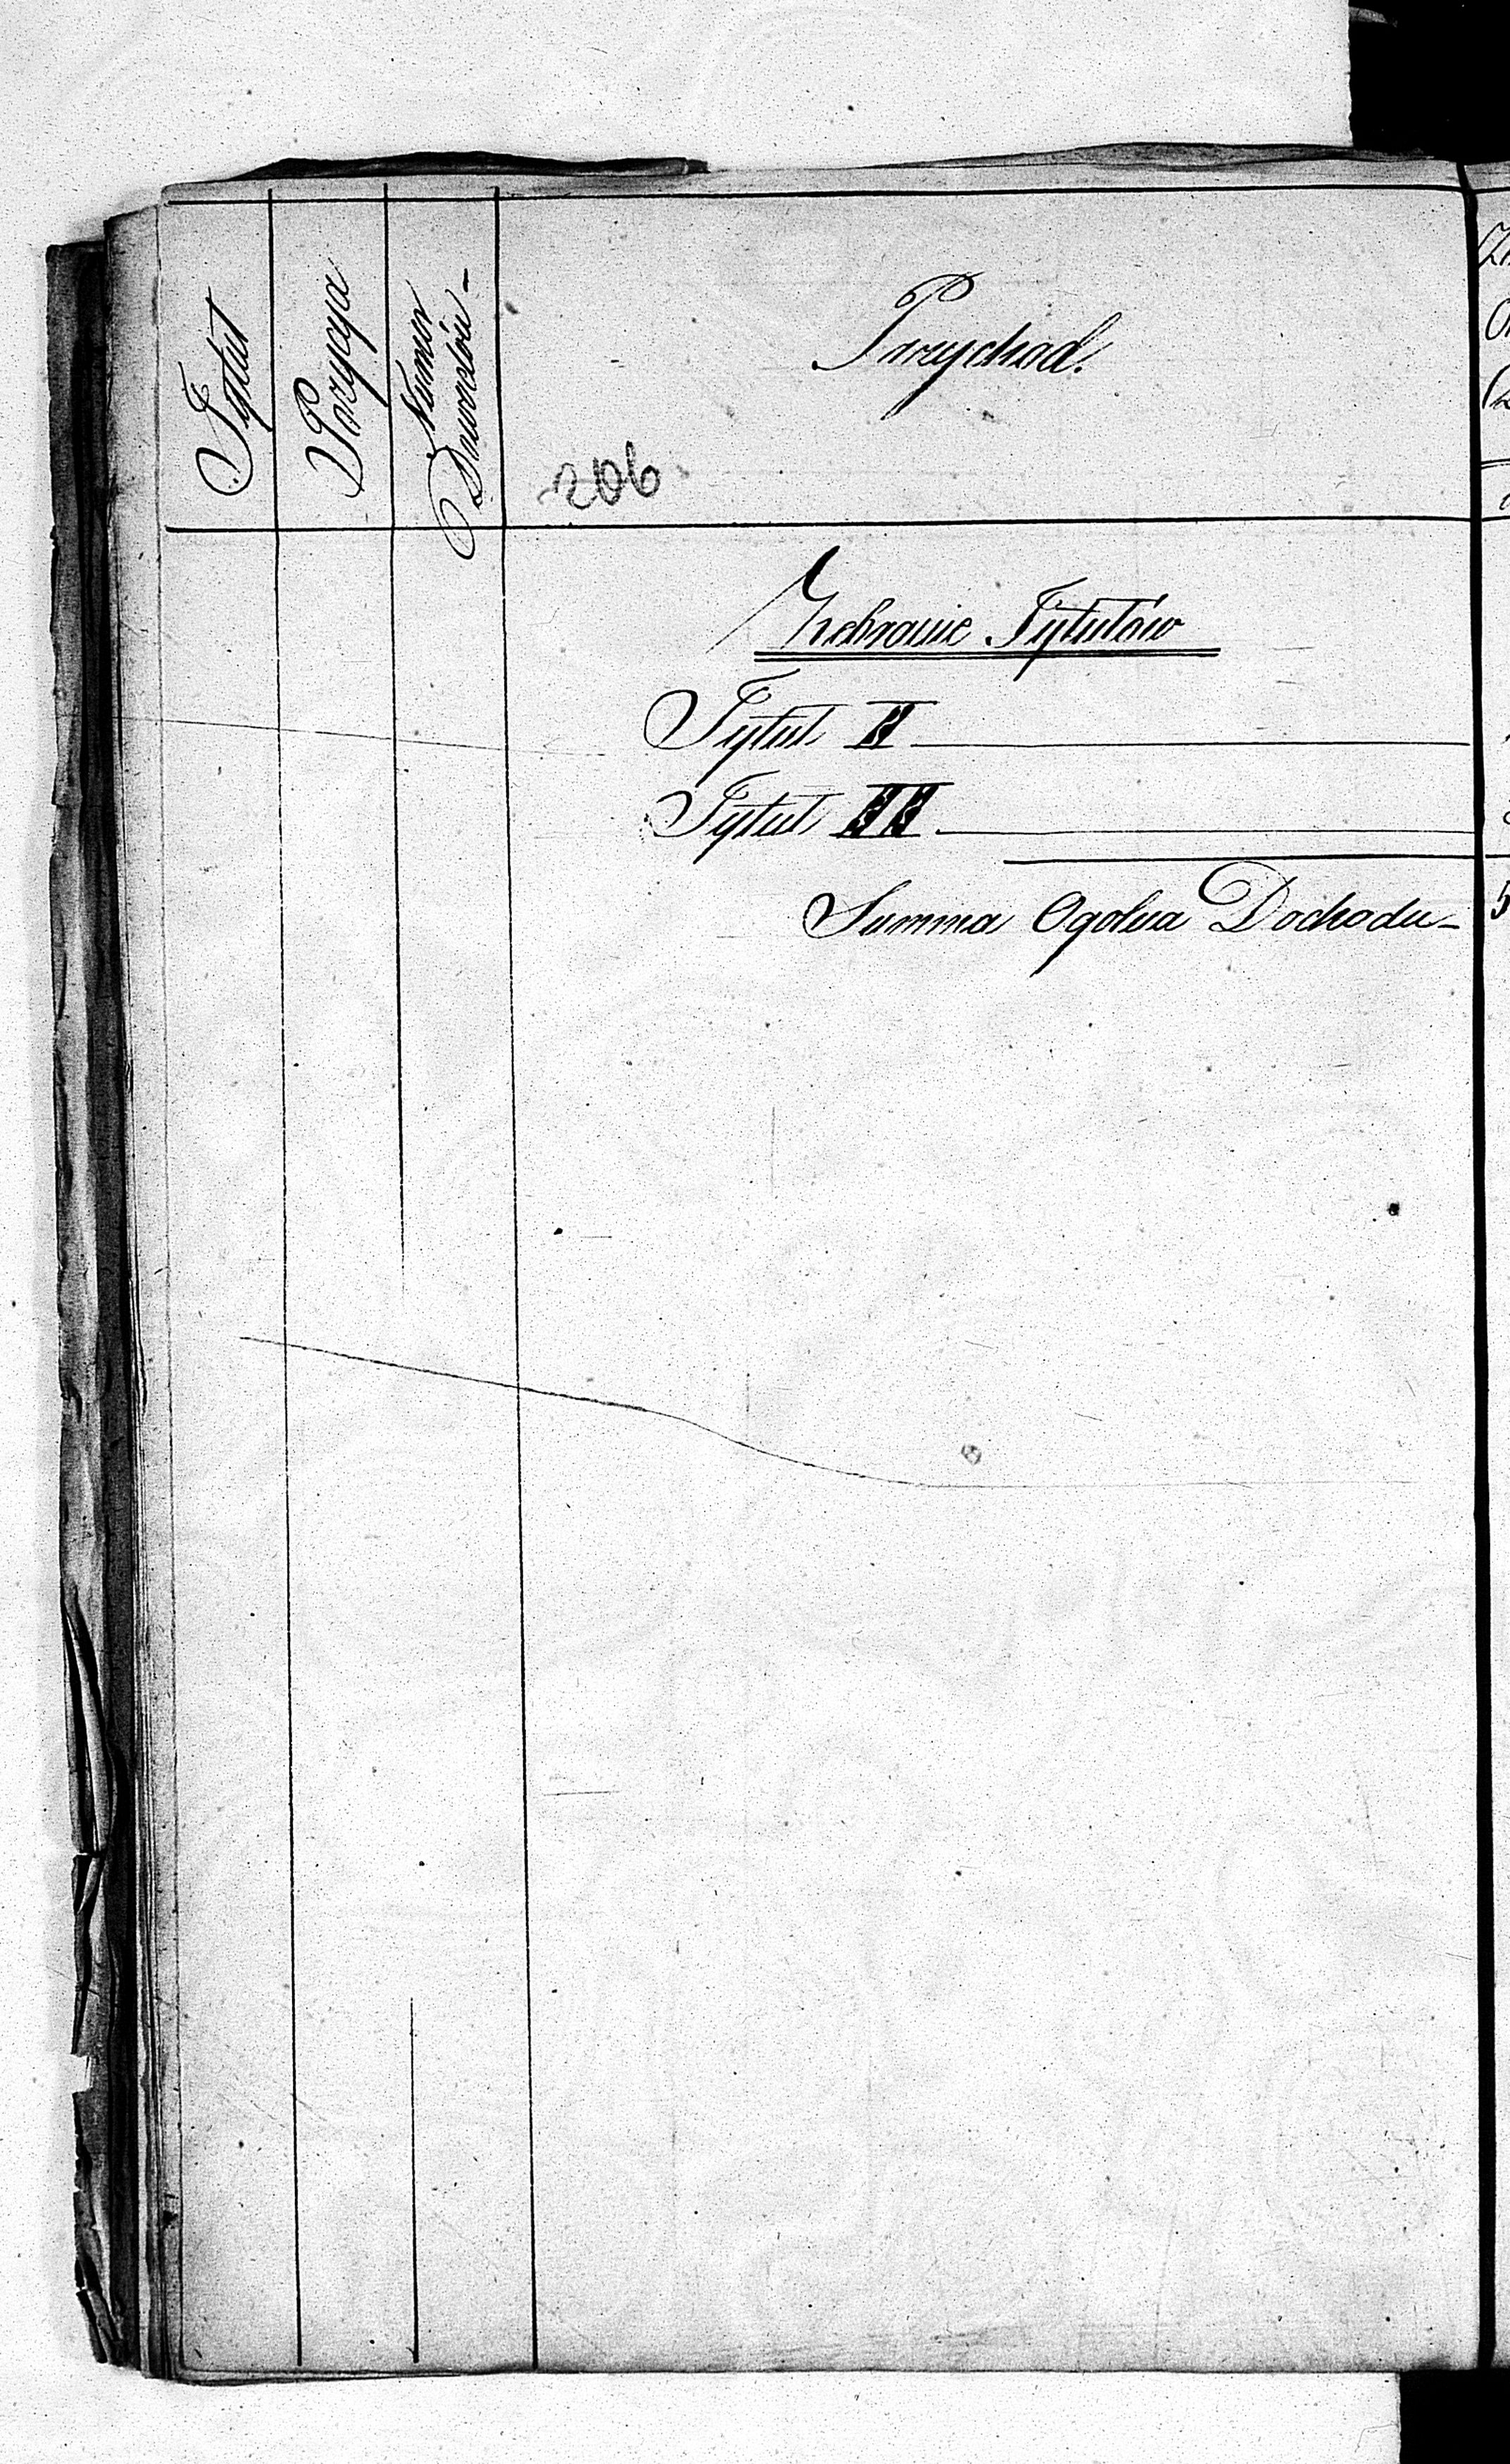 Tytuł
Pozycya
Numer
Dowodów -
Przychod.
206
Zebranie Tytułów
Tytuł II
Tytuł III
Summa Ogolna Dochodu -